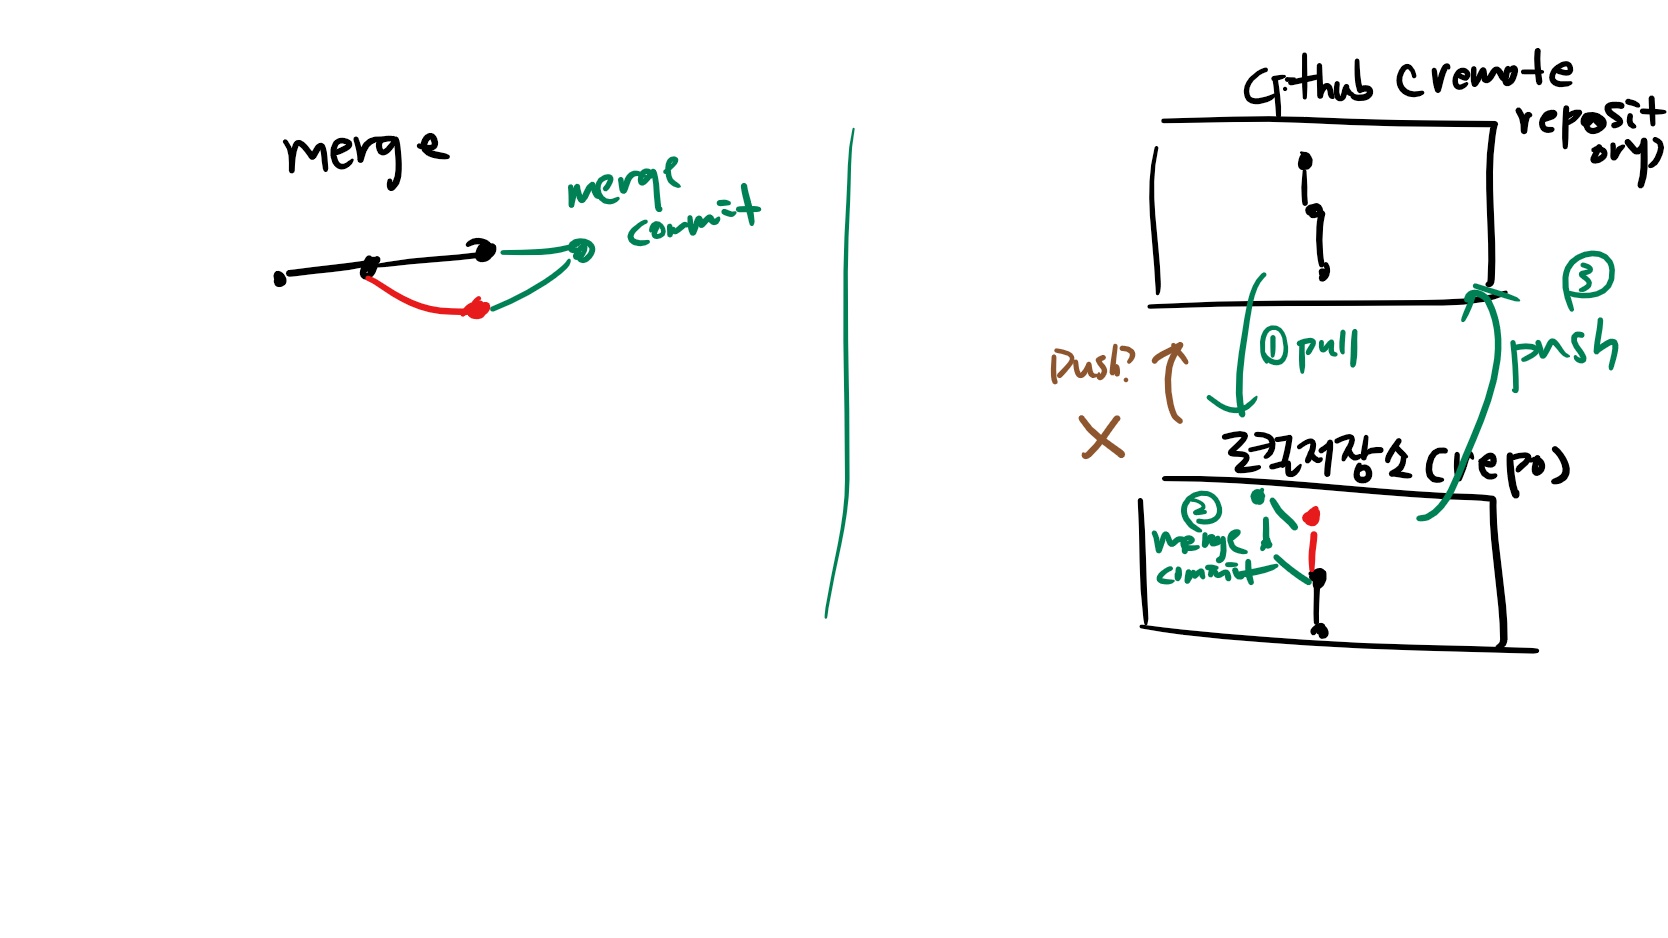 merge
merge
commit
Github (remote
reposit
ory)
① pull
push?
X
③
push
로컬저장소 (repo)
②
merge
commit